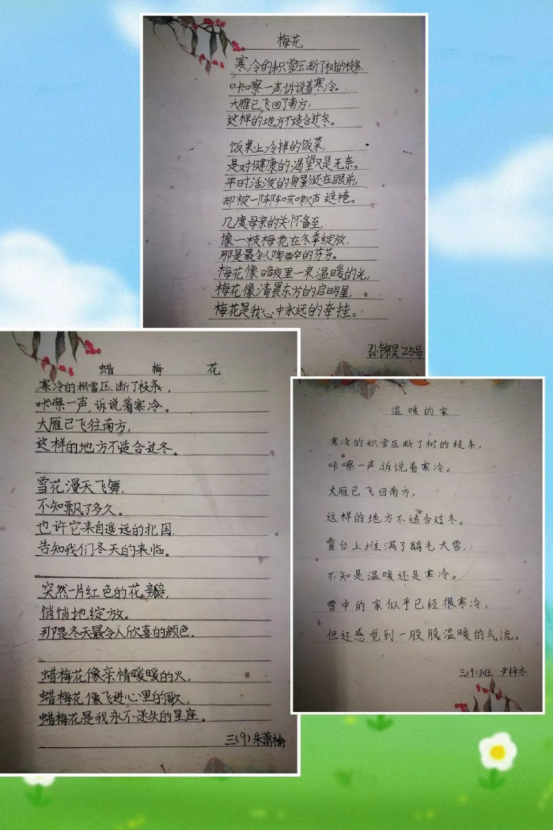 梅花
寒冷的积雪压断了树的枝条,
咔嚓一声诉说着寒冷。
大雁已飞回了南方,
这样的地方不适合过冬。
饭桌上冷掉的饭菜,
是对健康的渴望又是无奈。
平时活泼的身影还在眼前,
却被一阵阵咳嗽声遮掩。
几度母亲的关怀备至,
像一枝梅花在冬季绽放,
那是最令人陶醉的芬芳。
梅花像暗夜里一束温暖的光,
梅花像清晨东方的启明星,
梅花是我心中永远的牵挂。
孙锦昊 25号
蜡梅花
寒冷的积雪压断了枝条,
咔嚓一声,诉说着寒冷。
大雁已飞往南方,
这样的地方不适合过冬。
雪花漫天飞舞,
不知飘了多久。
也许它来自遥远的北国
告知我们冬天的来临。
突然一片红色的花瓣,
悄悄地绽放。
那是冬天最令人欣喜的颜色。
蜡梅花像亲情暖暖的火,
蜡梅花像飞进心里的歌,
蜡梅花是我永不迷失的星座。
三(9)朱
温暖的家
寒冷的积雪压断了树的枝条,
咔嚓一声,诉说着寒冷。
大雁已飞回南方,
这样的地方不适合过冬。
窗台上堆满了鹅毛大雪,
不知是温暖还是寒冷。
雪中的家似乎已经很寒冷,
但还感觉到一股股温暖的气流。
三(9)班 尹梓